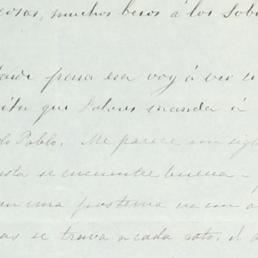 cosas, muchos besos á los Sob
para esa voy á ver
que Dolores manda á
Pablo. Me parece un sigl
se encuentre buena -
una postema en un
se trava á cada rato. á